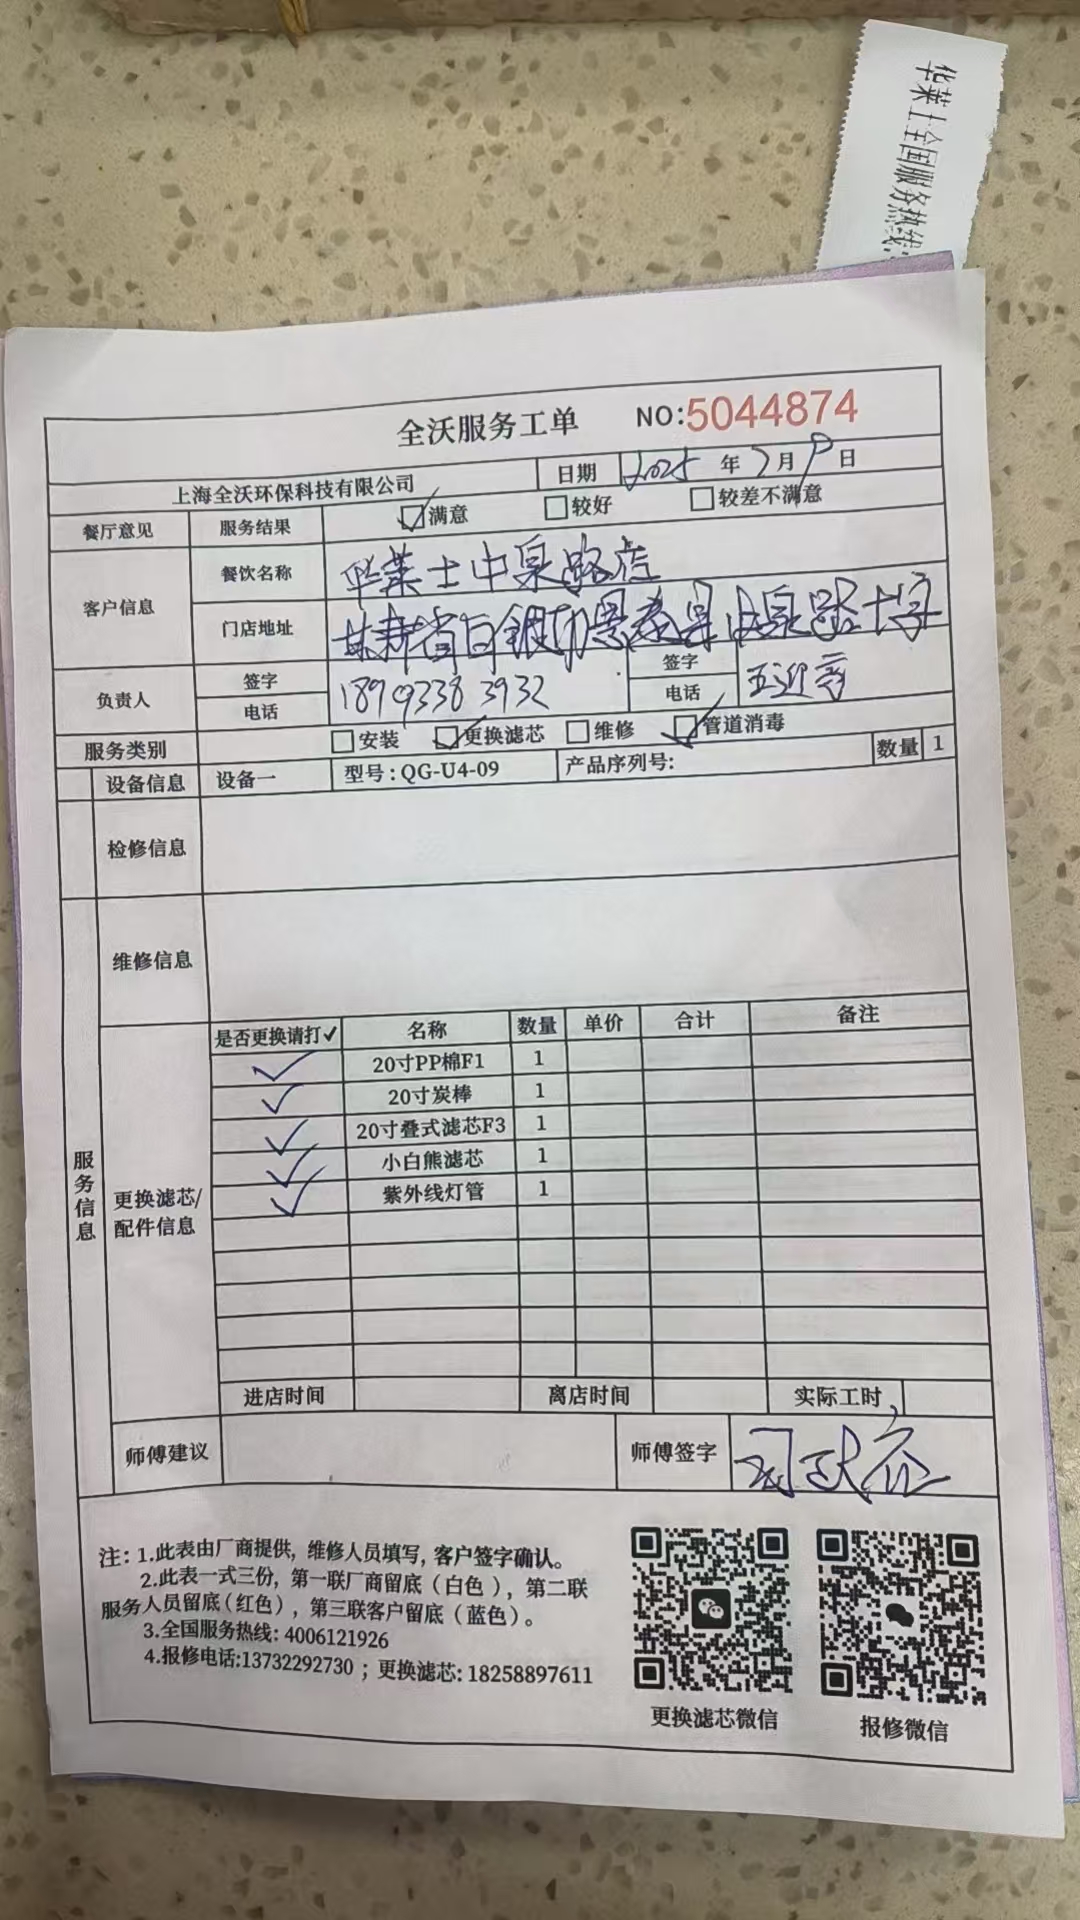 华莱士全国服务热线:
全沃服务工单 NO:5044874
上海全沃环保科技有限公司 日期 2025 年 7 月 9 日
餐厅意见 服务结果 ☑满意 □较好 □较差不满意
客户信息 餐饮名称 华莱士中泉路店
门店地址 甘肃省白银市景泰县中泉路十字
负责人 签字 签字
电话 18909338 3932 电话
服务类别 □安装 ☑更换滤芯 □维修 ☑管道消毒
设备信息 设备一 型号:QG-U4-09 产品序列号: 数量 1
检修信息
维修信息
服务信息
更换滤芯/配件信息
是否更换请打✓ 名称 数量 单价 合计 备注
✓ 20寸PP棉F1 1
✓ 20寸炭棒 1
✓ 20寸叠式滤芯F3 1
✓ 小白熊滤芯 1
✓ 紫外线灯管 1
进店时间 离店时间 实际工时
师傅建议 师傅签字
注: 1.此表由厂商提供, 维修人员填写, 客户签字确认。
2.此表一式三份, 第一联厂商留底(白色), 第二联
服务人员留底(红色), 第三联客户留底(蓝色)。
3.全国服务热线: 4006121926
4.报修电话:13732292730 ; 更换滤芯: 18258897611
更换滤芯微信 报修微信